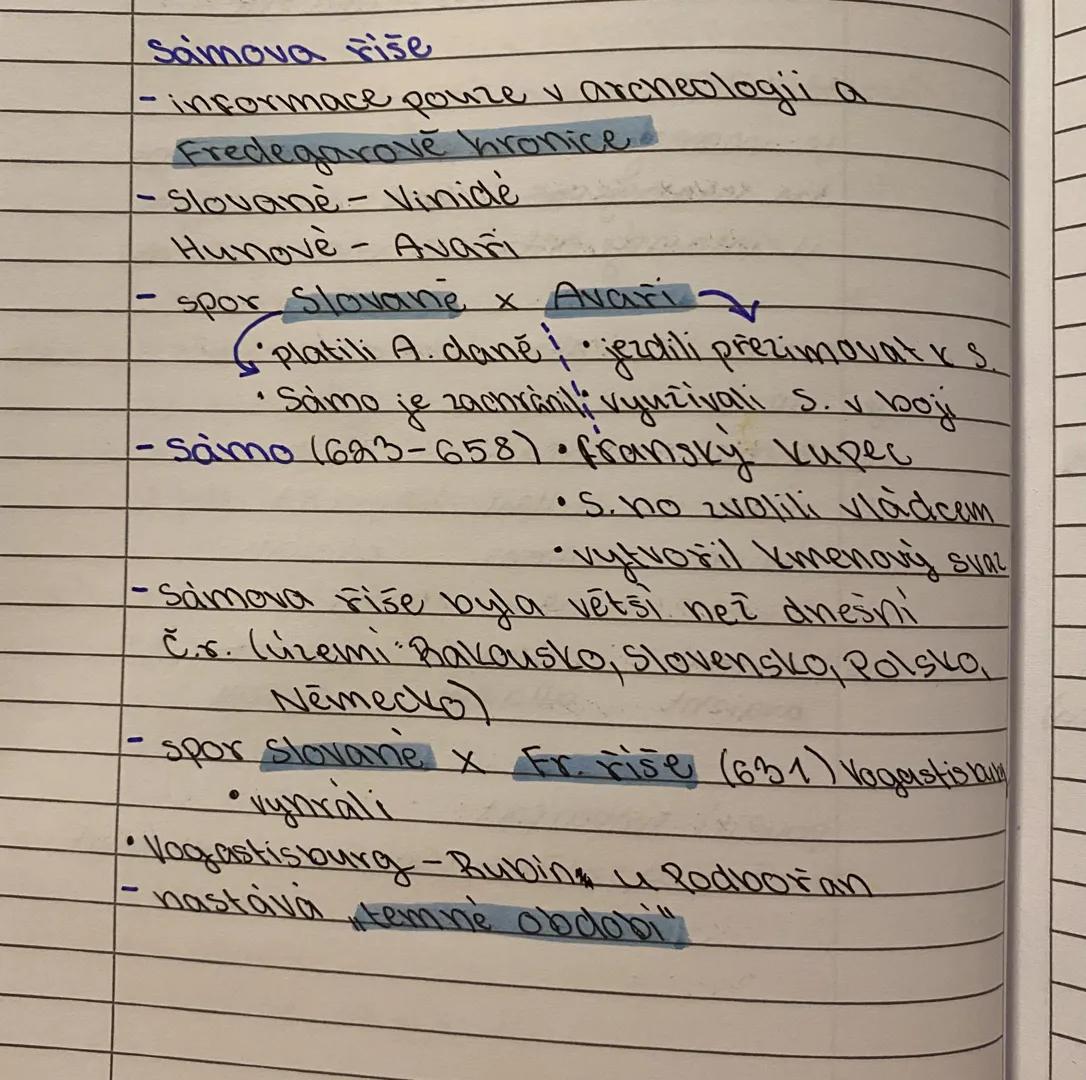 Sámova říše
- informace pouze v archeologii a
Fredegarově kronice
- Slované - Vinidé
Hunové - Avaři
- spor Slované x Avaři
• platili A. daně • jezdili přezimovat k S.
• Sámo je zachránil • využívali S. v boji
- Sámo (623-658) • franský kupec
• S. ho zvolili vládcem
• vytvořil kmenový svaz
- Sámova říše byla větší než dnešní
č.r. (území: Rakousko, Slovensko, Polsko,
Německo)
- spor Slované x Fr. říše (631) Vogastisburg
• vyhráli
• Vogastisburg - Rubín u Podbořan
- nastává „temné období"